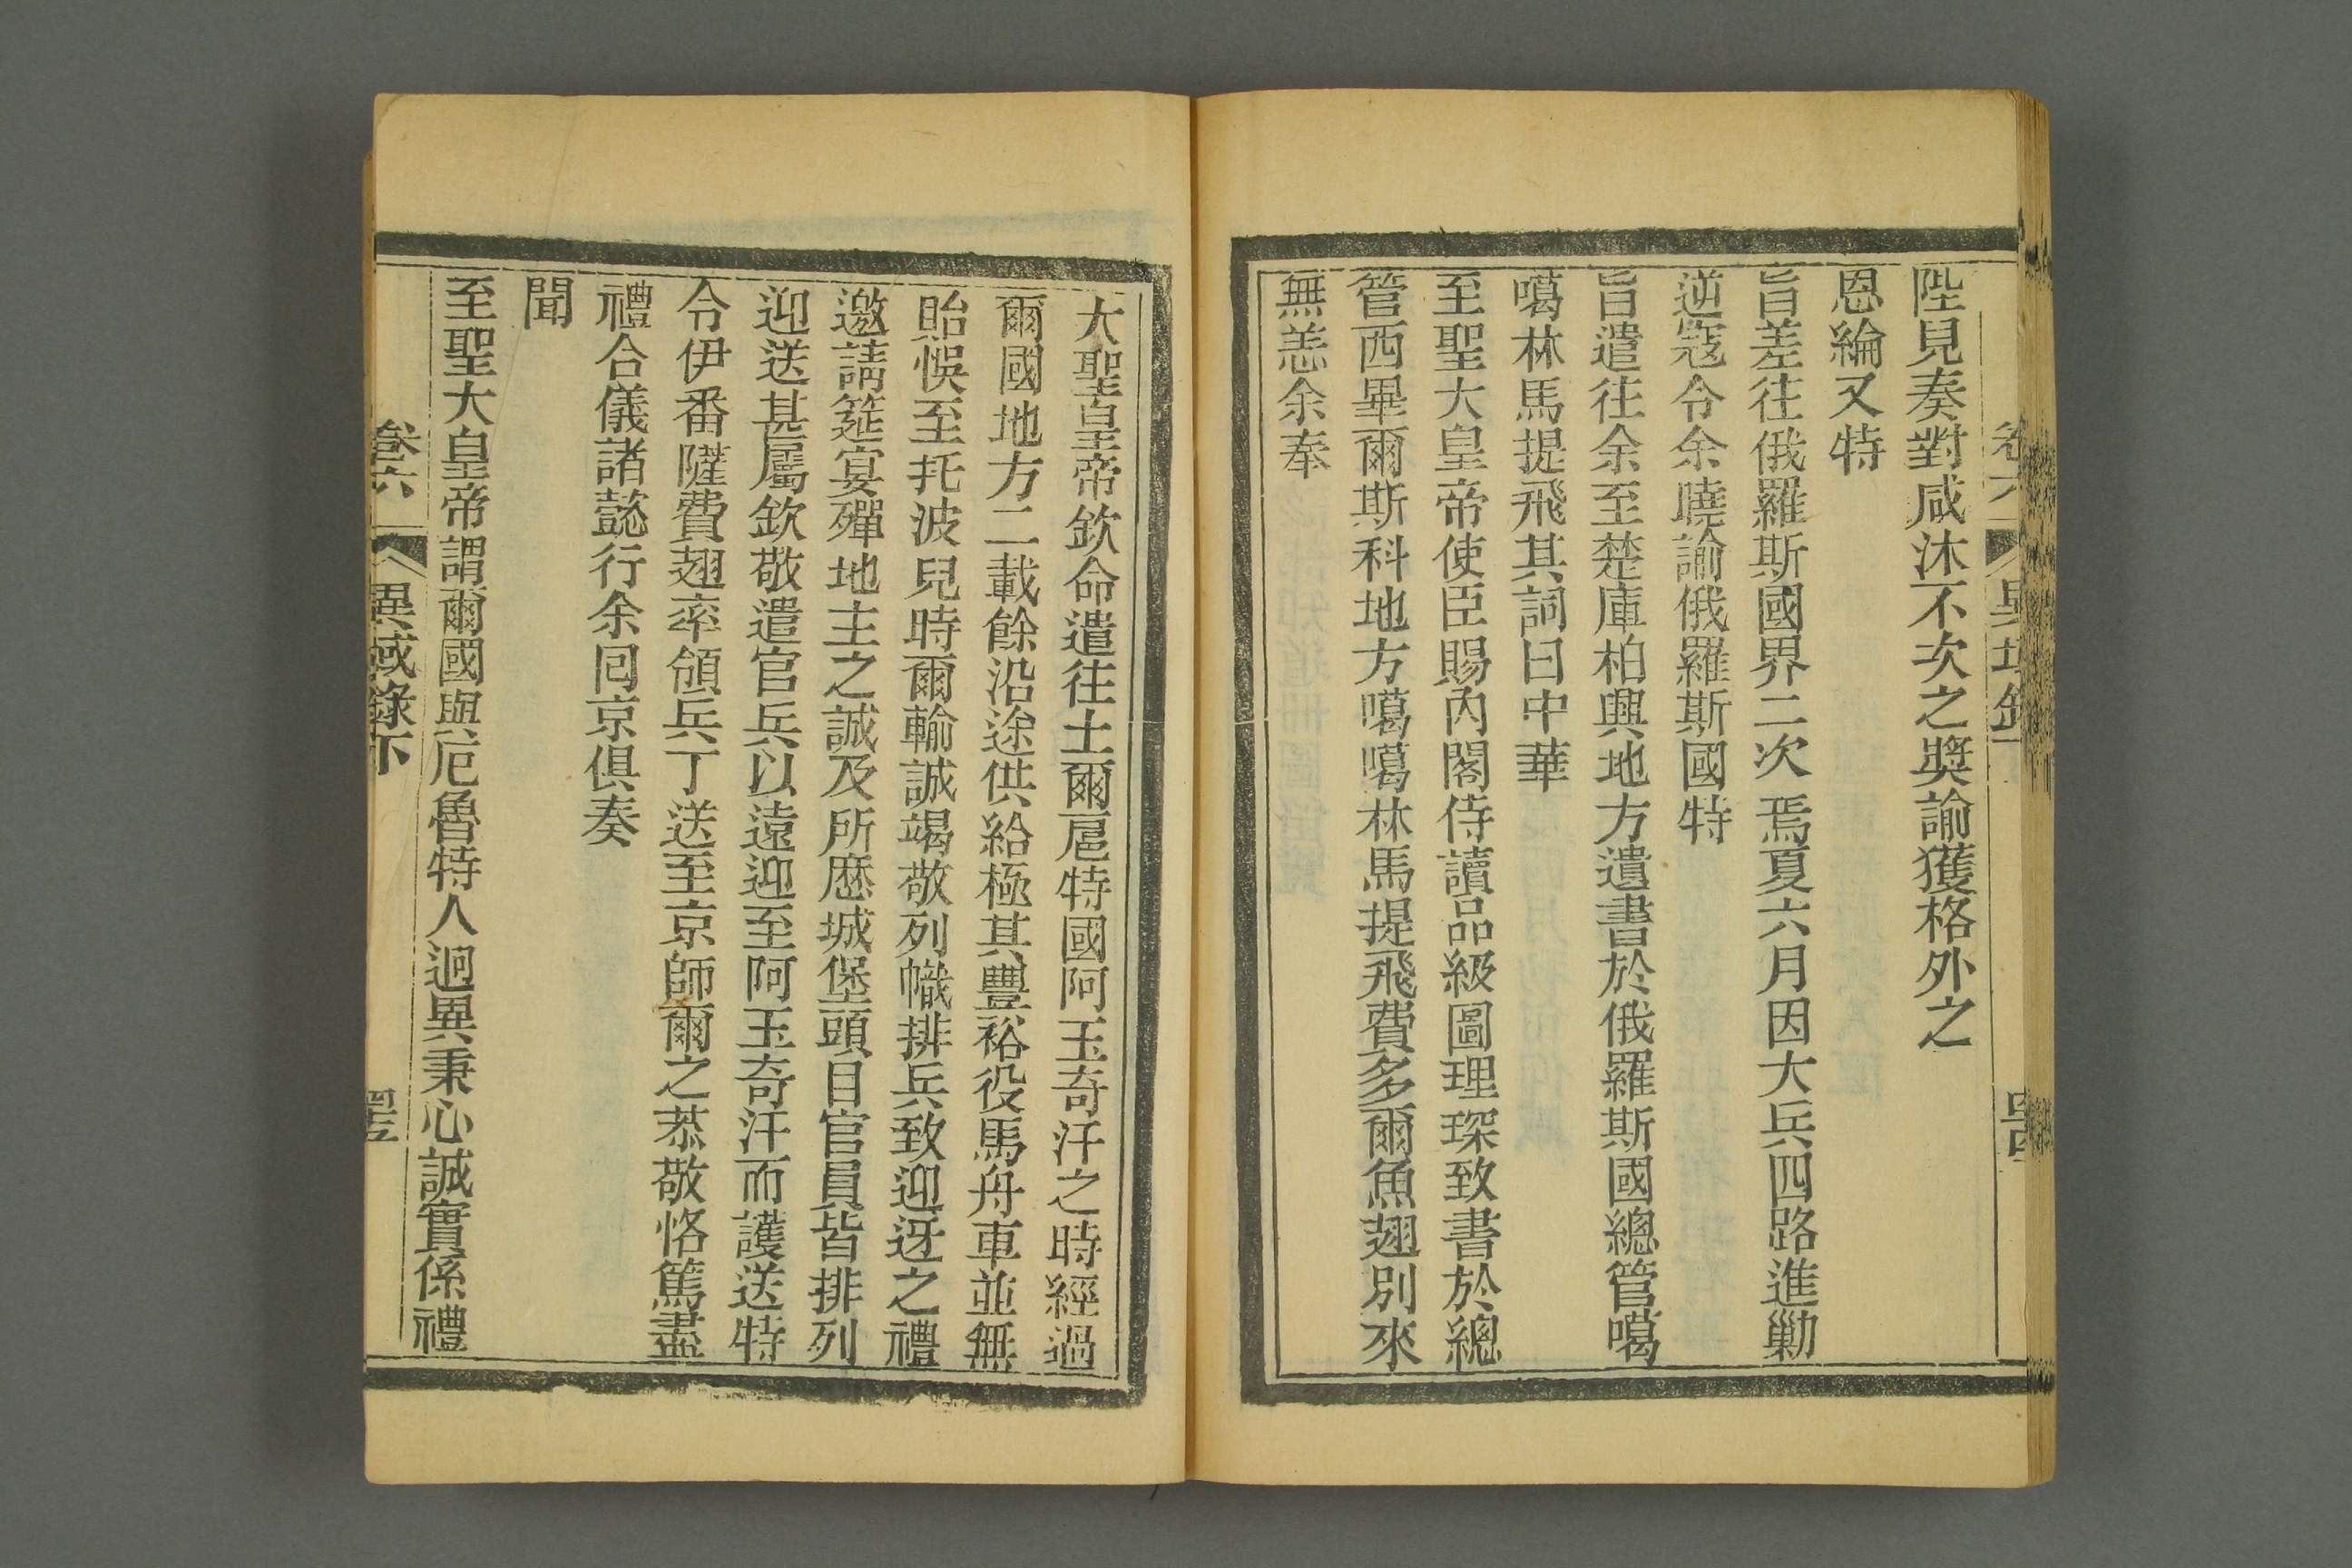 陛見奏對咸沐不次之獎諭獲格外之
恩綸又特
旨差往俄羅斯國界二次焉夏六月因大兵四路進勦
逆寇令余曉諭俄羅斯國特
旨遣往余至楚庫柏興地方遺書於俄羅斯國總管噶
噶林馬提飛其詞曰中華
至聖大皇帝使臣賜內閣侍讀品級圖理琛致書於總
管西畢爾斯科地方噶噶林馬提飛費多爾魚翅別來
無恙余奉
大聖皇帝欽命遣往土爾扈特國阿玉奇汗之時經過
爾國地方二載餘沿途供給極其豐裕役馬舟車並無
貽悞至托波兒時爾輸誠竭敬列幟排兵致迎迓之禮
邀請筵宴殫地主之誠及所歷城堡頭目官員皆排列
迎送甚屬欽敬遣官兵以遠迎至阿玉奇汗而護送特
令伊番薩費翅率領兵丁送至京師爾之恭敬恪篤盡
禮合儀諸懿行余回京俱奏
聞
至聖大皇帝謂爾國與厄魯特人迥異秉心誠實係禮
卷六 異域錄下